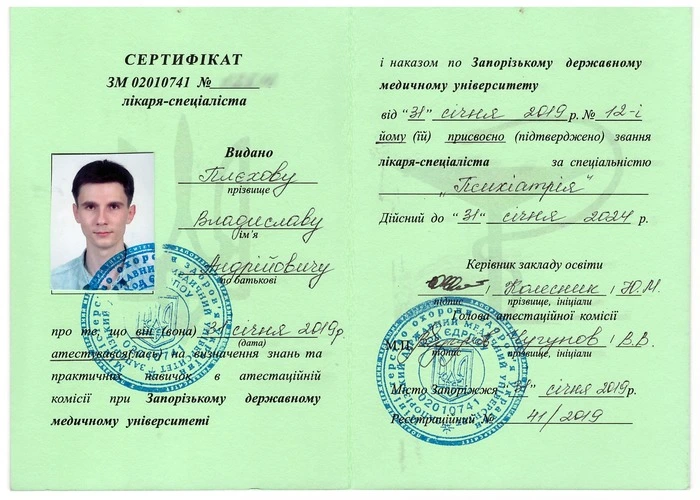 СЕРТИФІКАТ
ЗМ 02010741 №
лікаря-спеціаліста
Видано
Плєхову
прізвище
Владиславу
ім'я
Андрійовичу
по батькові
про те, що він (вона) 31 січня 2019р
(дата)
атестувався(лась) на визначення знань та
практичних навичок в атестаційній
комісії при Запорізькому державному
медичному університеті
і наказом по Запорізькому державному
медичному університету
від “31” січня 2019 р. № 12-і
йому (їй) присвоєно (підтверджено) звання
лікаря-спеціаліста за спеціальністю
„Психіатрія”
Дійсний до “31” січня 2024 р.
Керівник закладу освіти
Колесник Ю.М.
підпис прізвище, ініціали
Голова атестаційної комісії
М.П. Чугунов В.В.
підпис прізвище, ініціали
Місто Запоріжжя “31” січня 2019р.
Реєстраційний № 41/2019
02010741